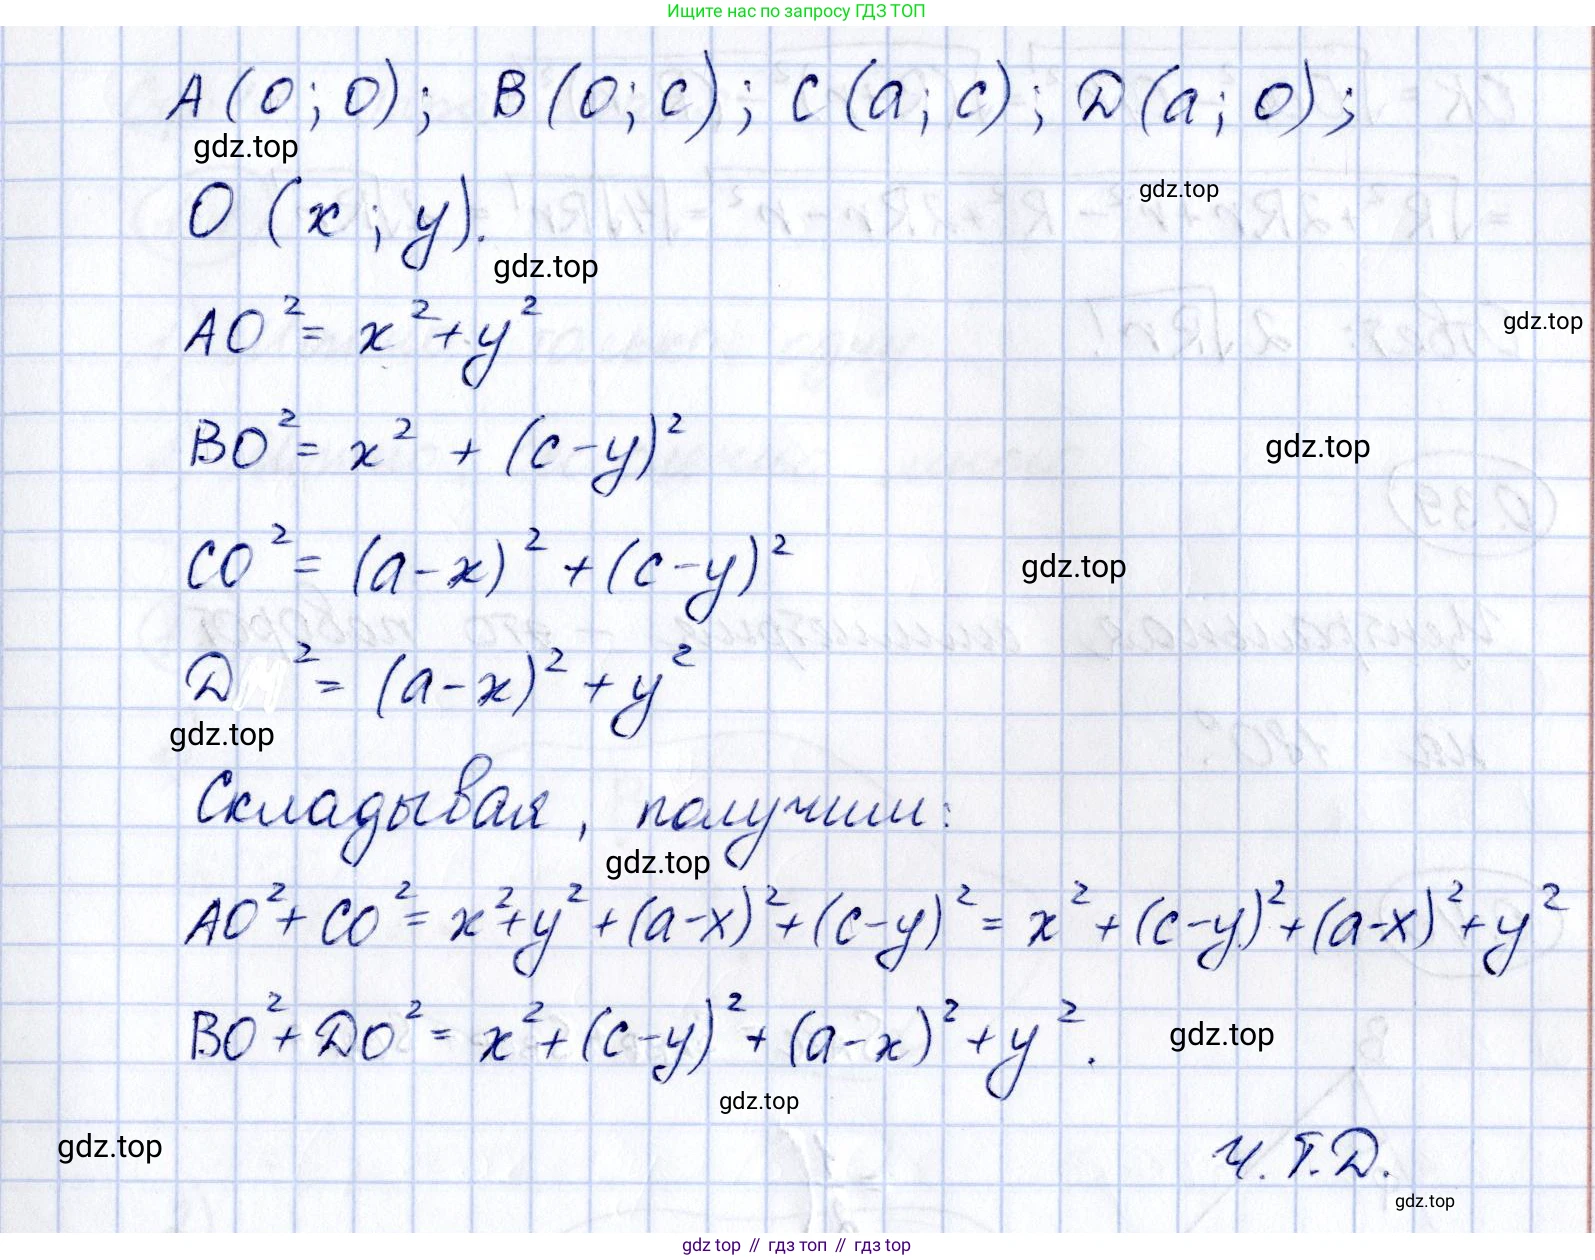 Ищите нас по запросу ГДЗ ТОП
A(0; 0); B(0; c); C(a; c); D(a; 0);
gdz.top
gdz.top
O(x; y).
gdz.top
AO² = x² + y²
gdz.top
BO² = x² + (c-y)²
gdz.top
CO² = (a-x)² + (c-y)²
gdz.top
D ² = (a-x)² + y²
gdz.top
Складывая, получим:
gdz.top
AO² + CO² = x² + y² + (a-x)² + (c-y)² = x² + (c-y)² + (a-x)² + y²
BO² + DO² = x² + (c-y)² + (a-x)² + y².
gdz.top
gdz.top
gdz.top
Ч.Т.Д.
gdz.top
gdz top // гдз топ // gdz top